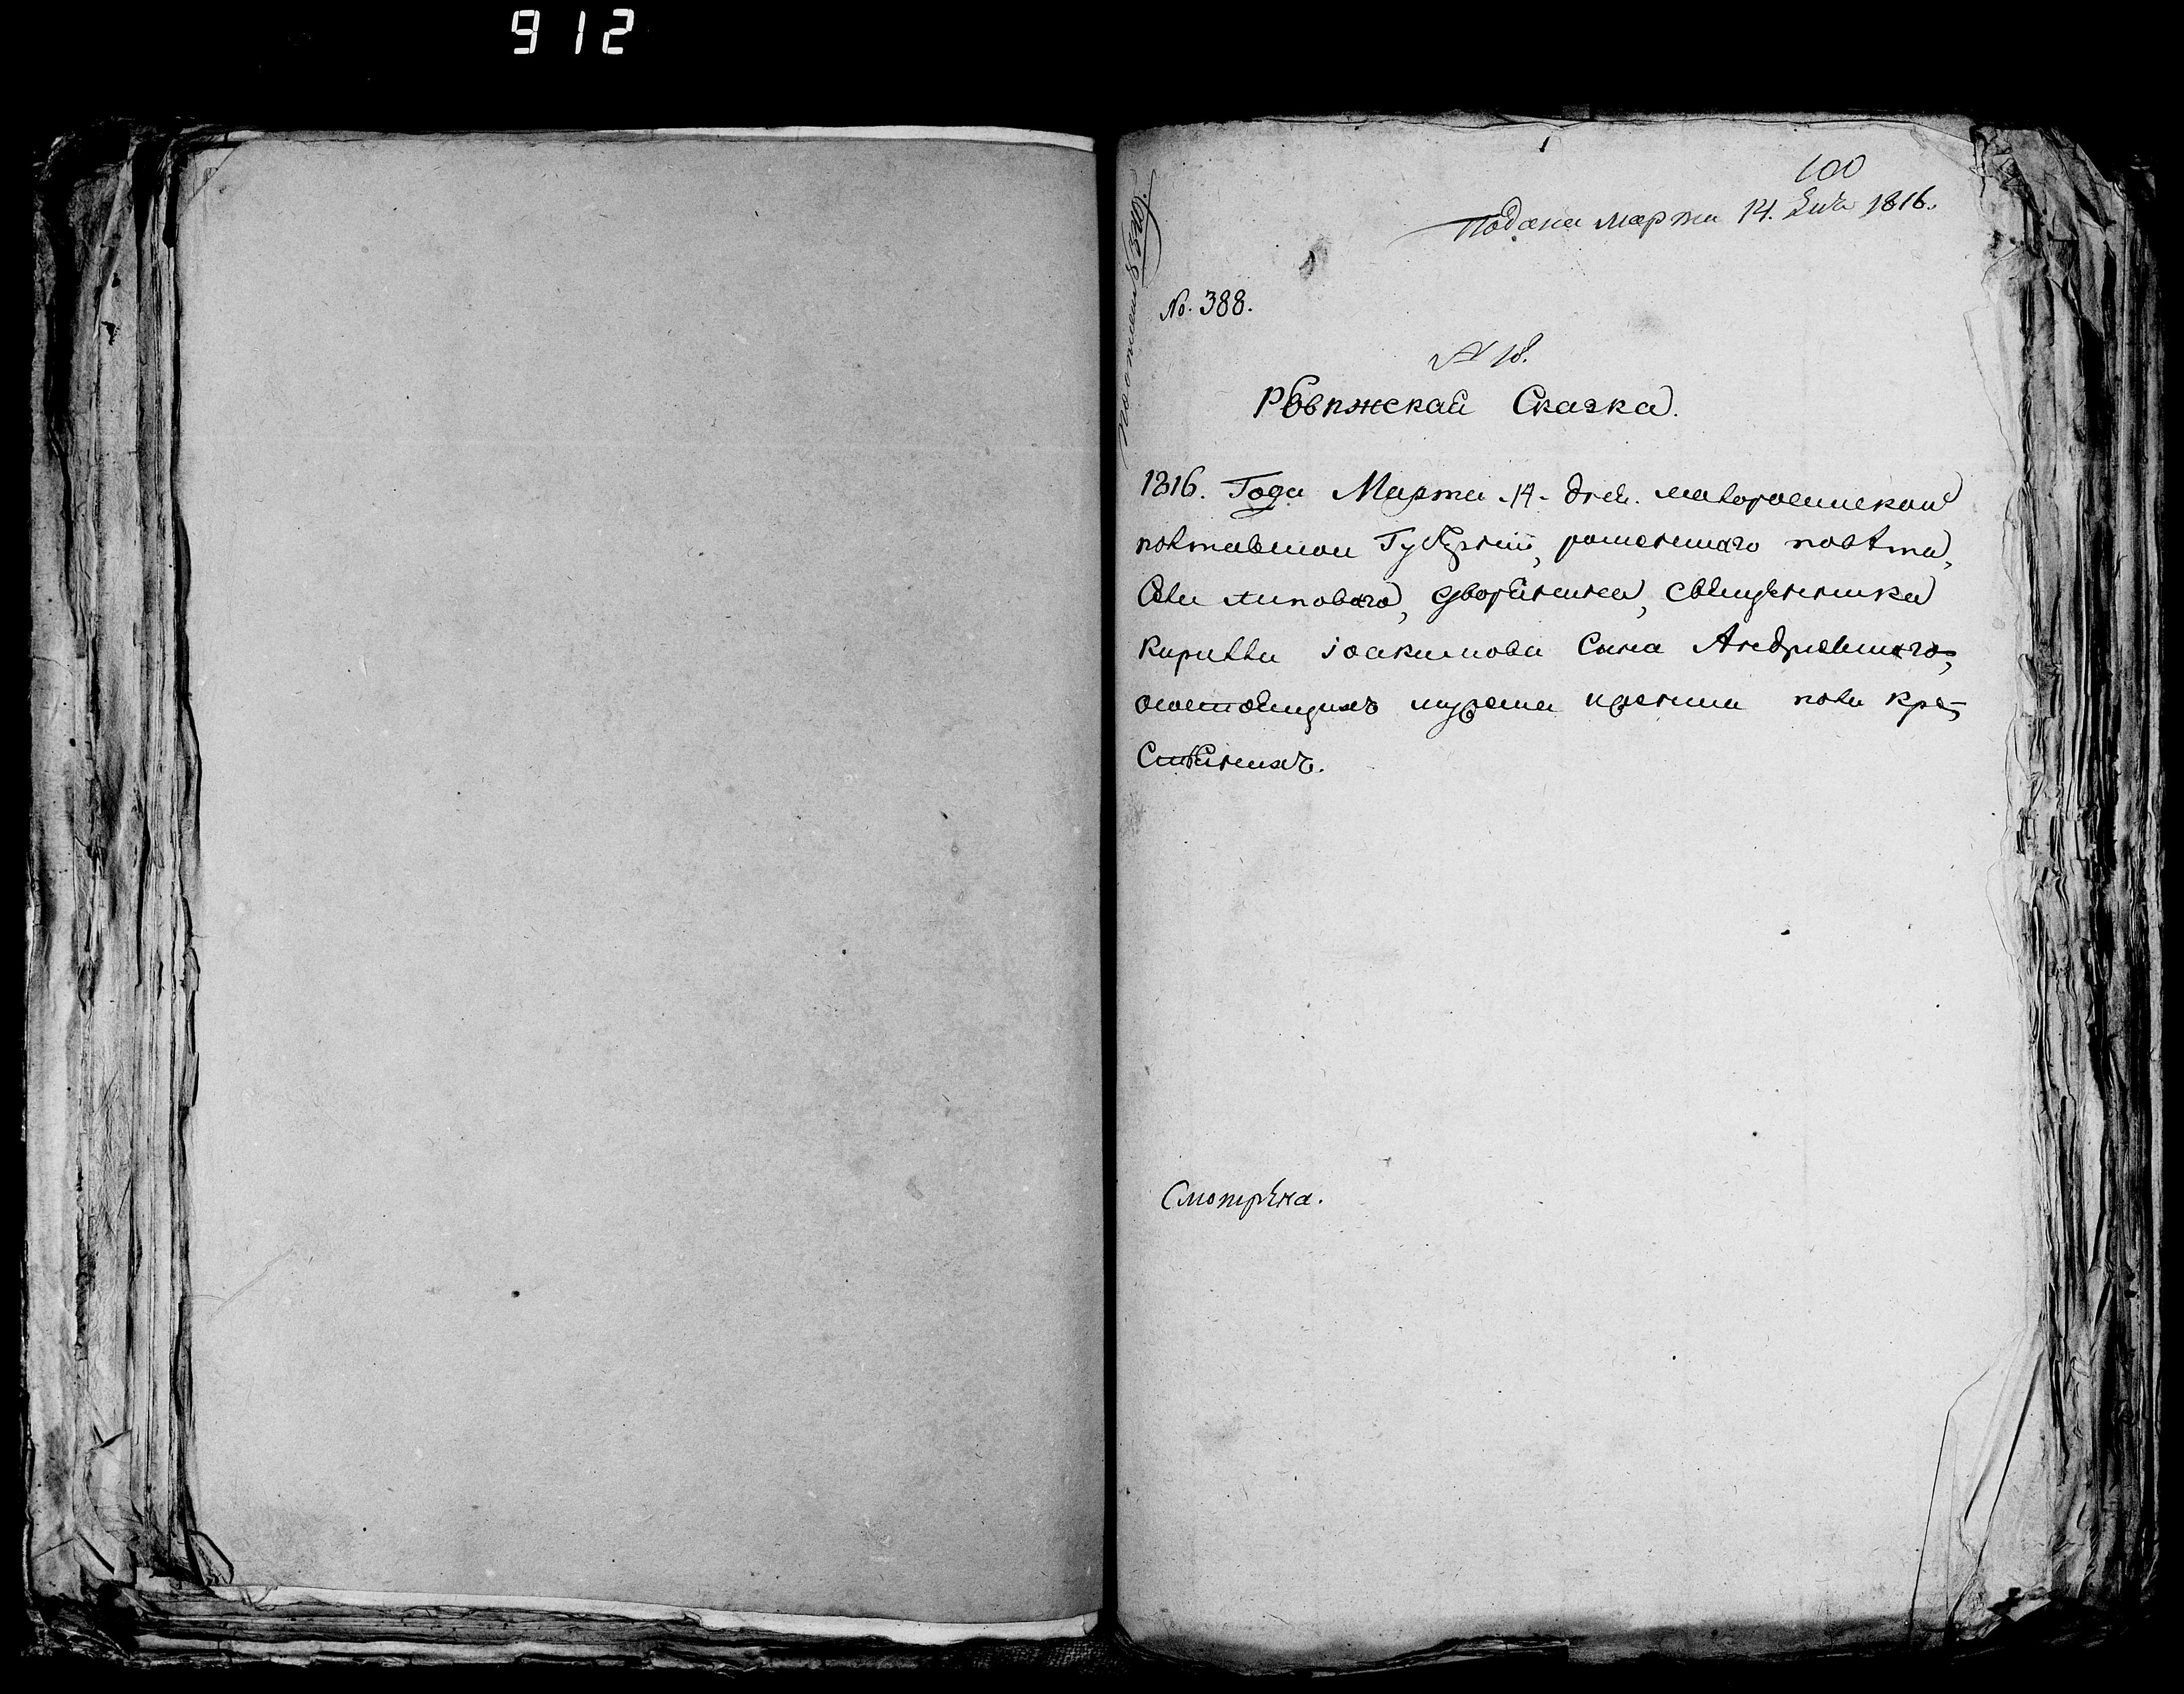 912
100
Подана марта 14. дня 1816.
No. 388.
№ 18.
Рѣвижская Сказка.
1816. Года Марта 14 дня. малороссийской
полтавской Губернии, роменского повѣта,
Села липового, дворянина, священника
Кирилла іоакимова Сына Андриевского,
о состоящихъ мужеска и женска пола кре-
стянахъ.
Смотрѣна.